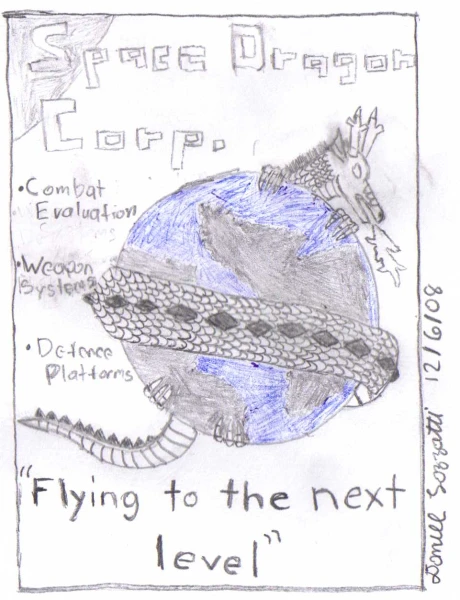 Space Dragon
Corp.
•Combat
Evaluation
•Weapon
Systems
•Defence
Platforms
"Flying to the next
level"
12/6/08